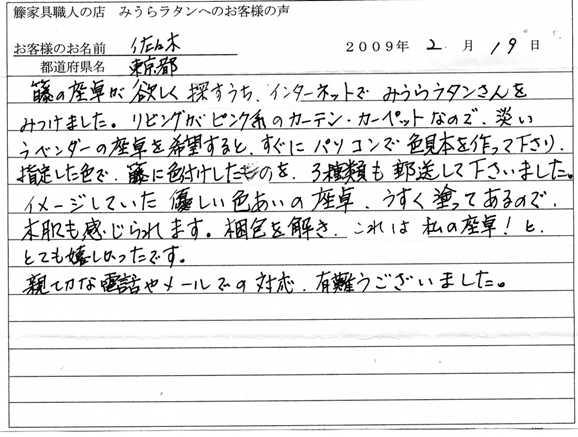 籐家具職人の店 みうらラタンへのお客様の声
お客様のお名前 佐々木 2009年 2 月 19 日
都道府県名 東京都
籐の座卓が欲しく探すうち、インターネットでみうらラタンさんを
みつけました。リビングがピンク系のカーテン・カーペットなので、淡い
ラベンダーの座卓を希望すると、すぐにパソコンで色見本を作って下さり、
指定した色で、籐に色付けしたものを、3種類も郵送して下さいました。
イメージしていた優しい色あいの座卓、うすく塗ってあるので、
木肌も感じられます。梱包を解き、これは私の座卓！と、
とても嬉しかったです。
親切な電話やメールでの対応、有難うございました。